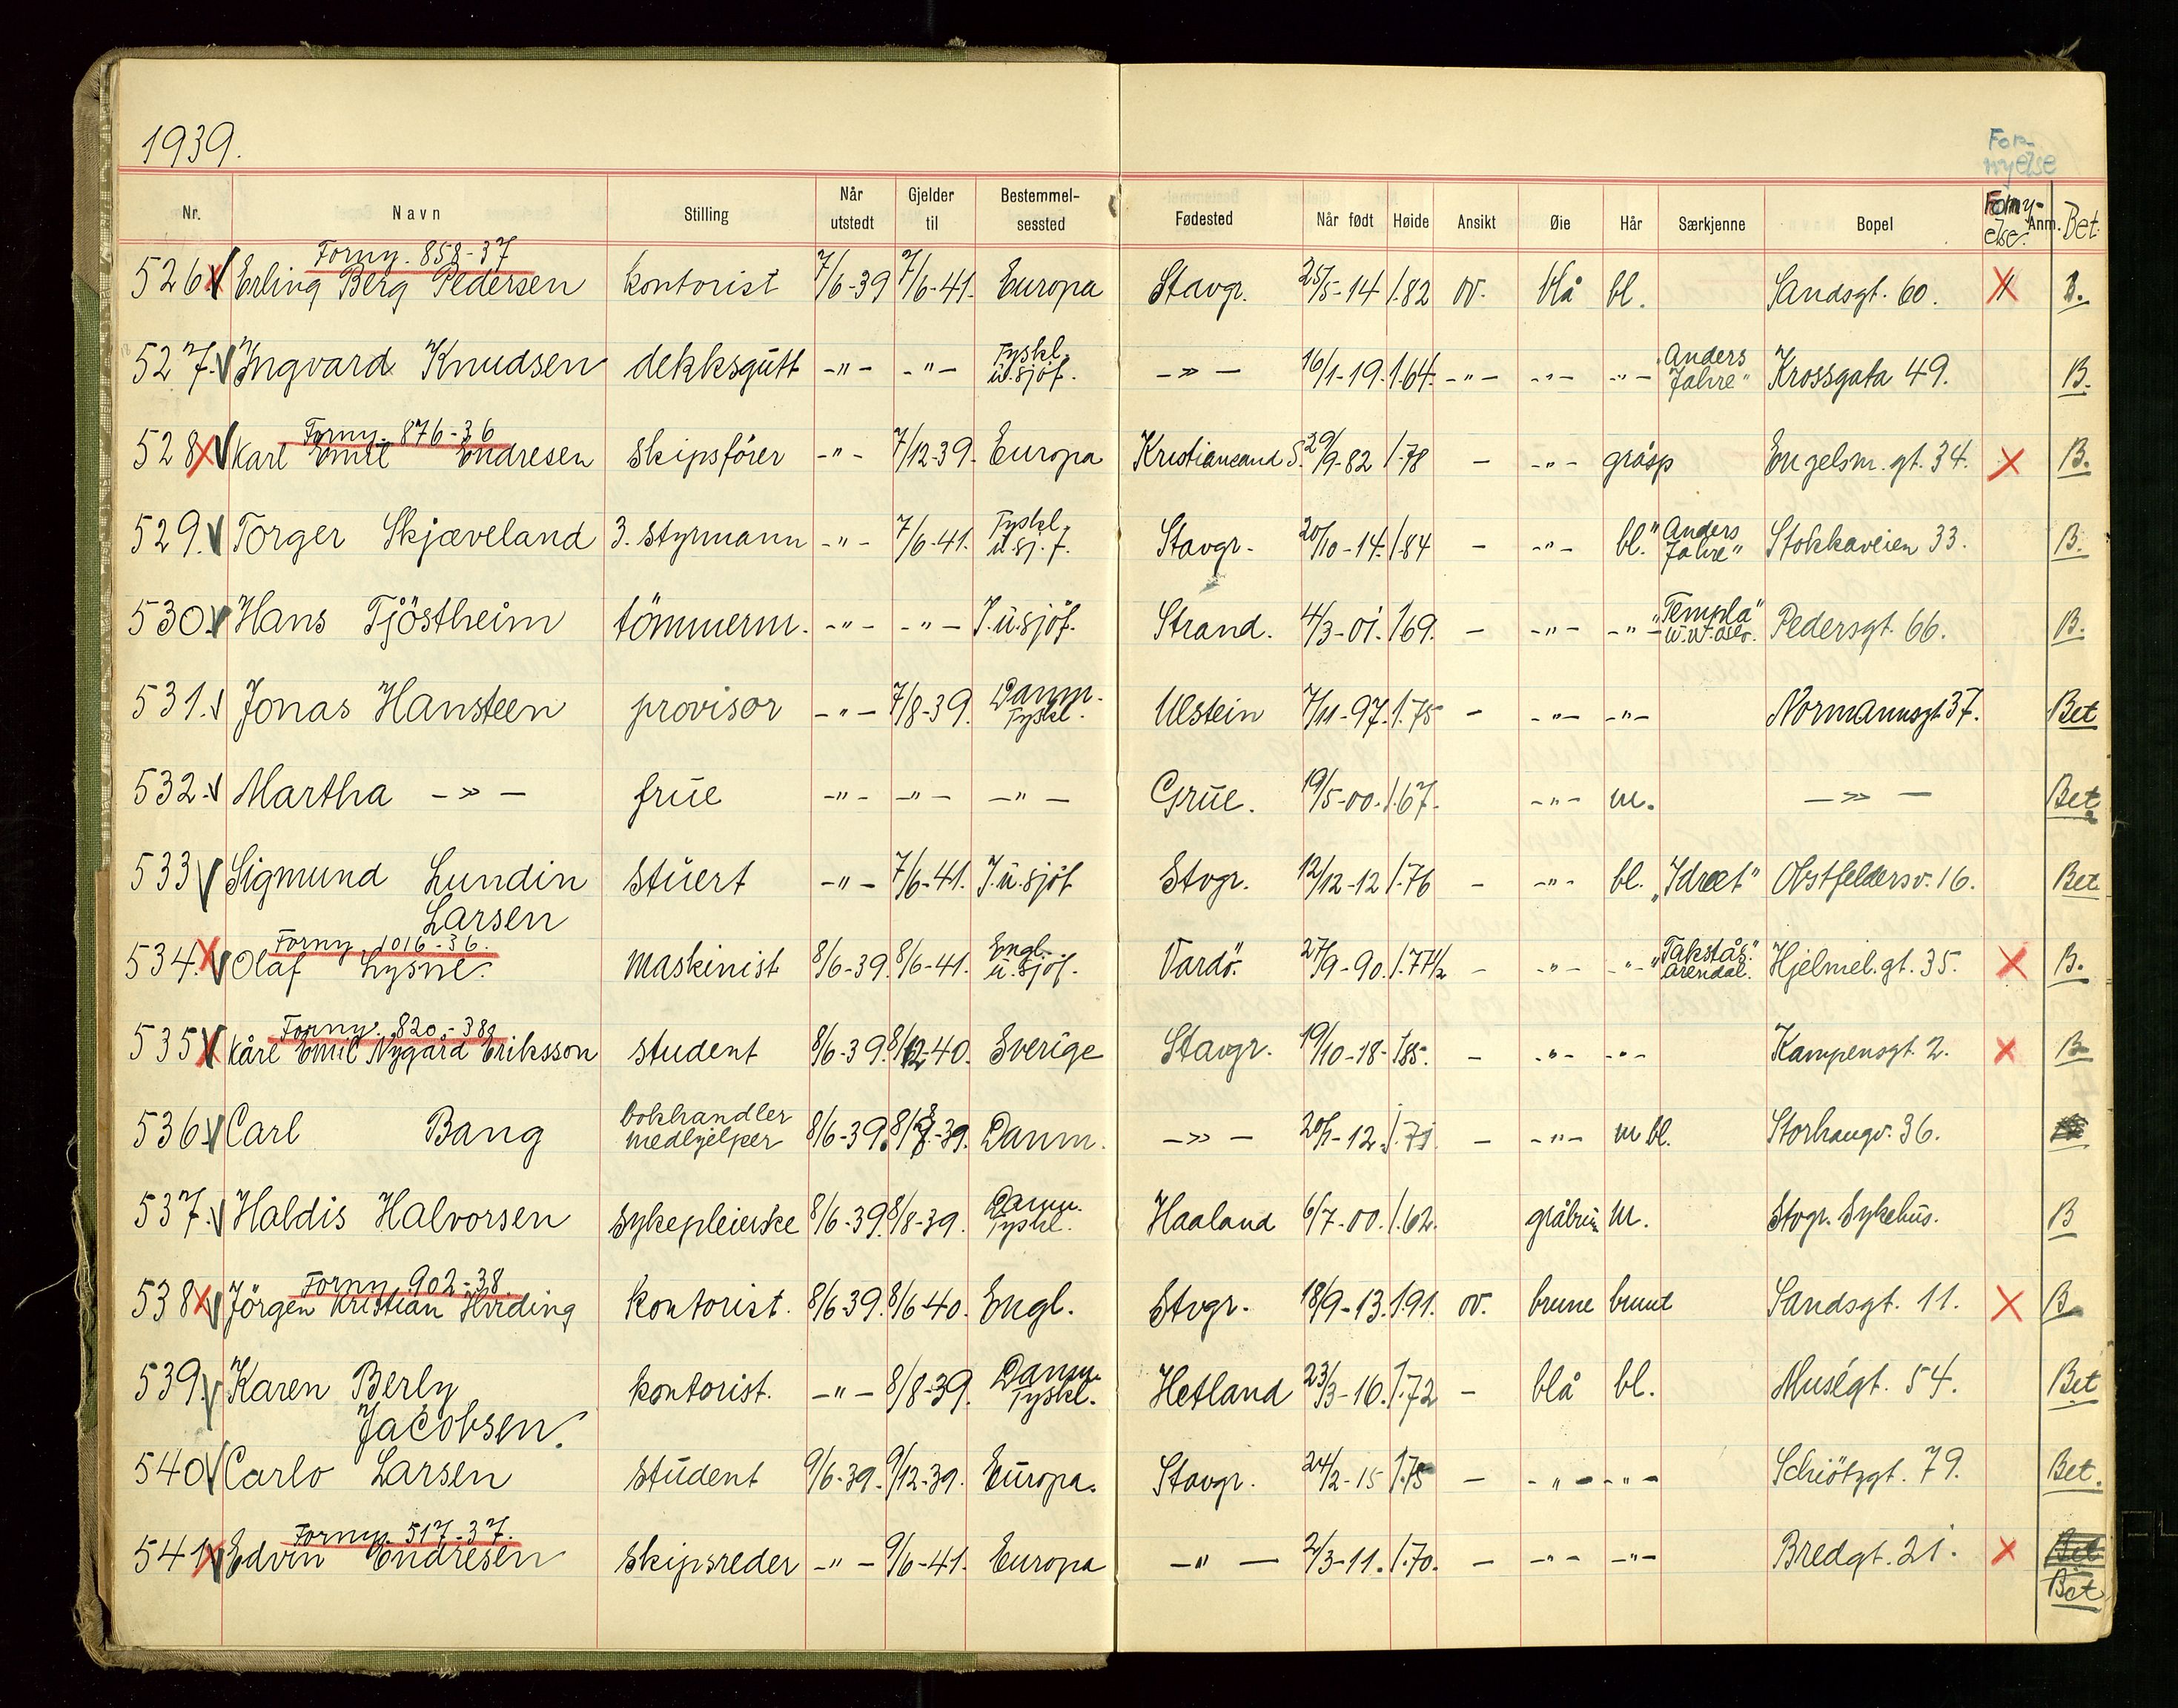 1939.
For-
nyelse
Nr. Navn Stilling Når utstedt Gjelder til Bestemmel-sessted Fødested Når født Høide Ansikt Øie Hår Særkjenne Bopel Forny-else. Anm. Bet.
Forny. 858-37
526 Erling Berg Pedersen kontorist 7/6-39 7/6-41. Europa Stavgr. 25/5-14 1.82 ov. blå bl. Sandsgt. 60. B.
527. Yngvard Knudsen dekksgutt -"- -"- Tyskl. u.sjöf. -»- 16/1-19. 1.64. -"- -"- -"- "Anders Jahre" Krossgata 49. B.
Forny. 876-36
528 Karl Emil Endresen skipsförer -"- 7/12-39. Europa Kristiansand S. 29/9-82 1.78 - -"- gråsp Engelsm.gt. 34. B.
529. Torger Skjæveland 3. styrmann -"- 7/6-41. Tyskl. u.sj.f. Stavgr. 20/10-14. 1.84 - -"- bl. "Anders Jahre" Stokkaveien 33. B.
530. Hans Tjöstheim tömmerm. -"- -"- J.u.sjöf. Strand. 4/3-01. 1.69. - -"- -"- "Templa" Pedersgt. 66. B.
531. Jonas Hansteen provisor -"- 7/8-39. Danm. Tyskl. Ulstein 7/11-97. 1.75 - -"- -"- Normannsgt 37. Bet
532. Martha -»- frue -"- -"- -"- Grue. 19/5-00. 1.67. -"- m. -»- Bet
533 Sigmund Lundin stuert -"- 7/6-41. J.u.sjöf Stvgr. 12/12-12 1.76 - -"- bl. "Idræt" Obstfeldersv. 16. Bet.
Larsen
Forny. 1016-36.
534. Olaf Lysne. maskinist 8/6-39. 8/6-41. Engl. u.sjöf. Vardö. 27/9-90. 1.77 1/2 - -"- -"- "Takstås." Arendal. Hjelmel.gt. 35. B.
Forny. 820-38
535 Kåre Emil Nygård Eriksson student 8/6-39. 8/12-40. Sverige Stavgr. 19/10-18- 1.85. - -"- -"- Kampensgt. 2. B
536. Carl Bang bokhandler medhjelper 8/6-39. 8/8-39. Danm. -»- 1.71. - -"- m bl. Storhaugv. 36.
537. Haldis Halvorsen sykepleierske 8/6-39. 8/8-39. Danm. Tyskl. Haaland 6/7-00. 1.62. gråbrun m. Stvgr. Sykehus. B
Forny. 902-38
538 Jörgen Kristian Hviding kontorist. 8/6-39. 8/6-40. Engl. Stvgr. 18/9-13. 1.91. ov. brune brunt Sandsgt. 11. B
539. Karen Berly kontorist. -"- 8/8-39. Danm. Tyskl. Hetland 23/3-16. 1.72 - blå bl. Muségt. 54. Bet
Jacobsen.
540 Carlo Larsen student 9/6-39. 9/12-39. Europa. Stavgr. 24/2-15 1.75 - -"- -"- Schiötzgt. 79. Bet.
Forny. 517-37.
541 Edvin Endresen skipsreder -"- 9/6-41. Europa -"- 2/3-11. 1.70. - -"- -"- Bredgt. 21. Bet
Bet